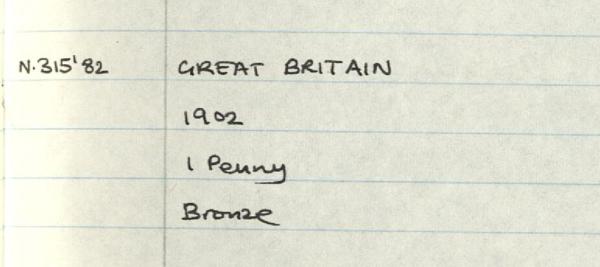 N.315'82 GREAT BRITAIN
1902
1 Penny
Bronze